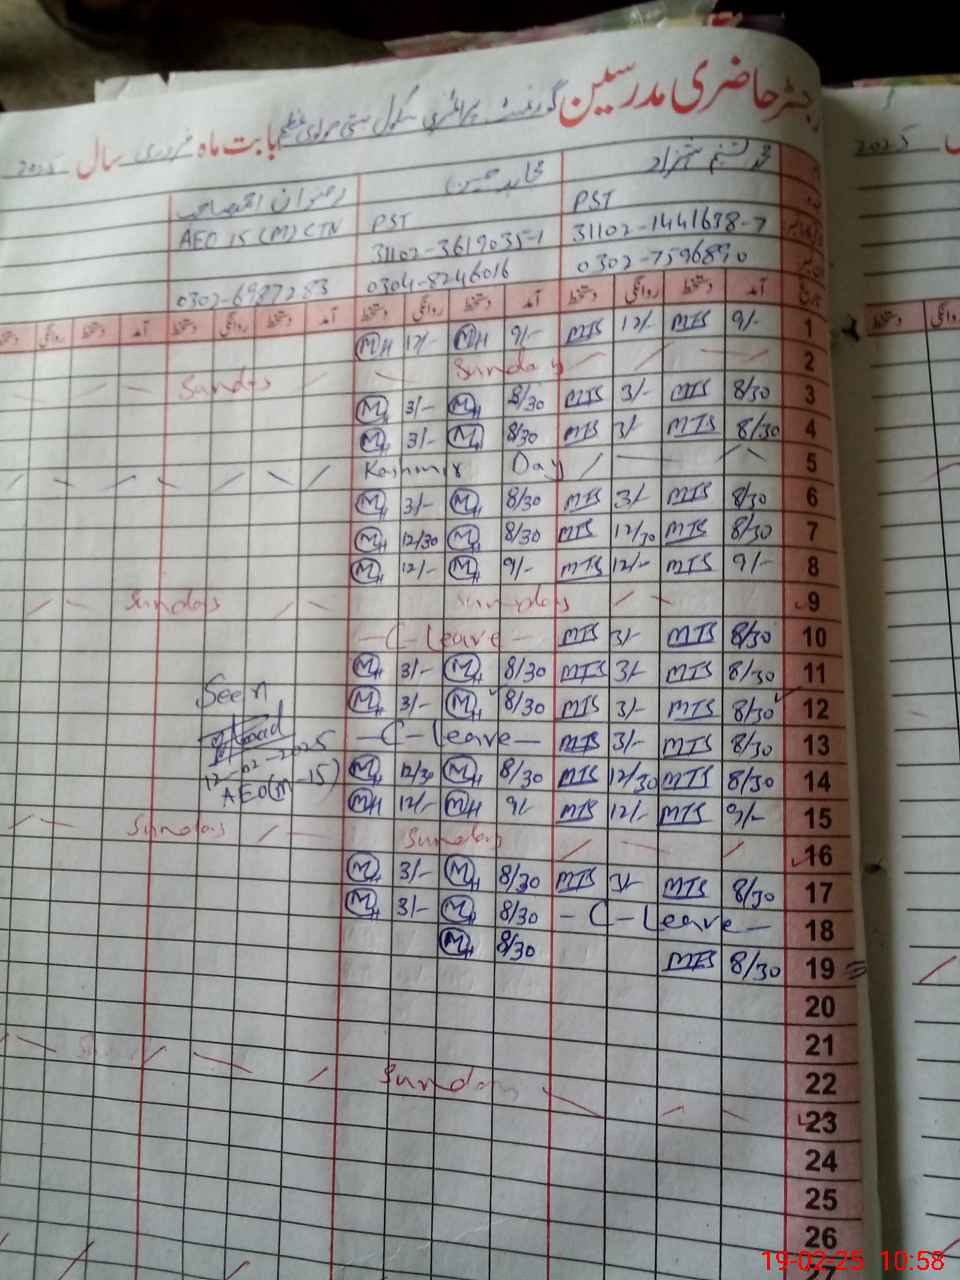 رجسٹر حاضری مدرسین گورنمنٹ پرائمری سکول بستی مولوی بابت ماہ فروری سال 2025
2025
شہزاد
PST PST AEO 15 (M) CTN
31102-1441638-7 31102-3619035-1
0302-7596890 0304-8246016 0302-6987283
آمد دستخط روانگی دستخط آمد دستخط روانگی دستخط آمد دستخط روانگی دستخط آمد دستخط روانگی دستخط
1 9/- MTS 12/- MTS 9/- MH 12/- MH
2 Sunday Sunday
3 8/30 MTS 3/- MTS 8/30 MH 3/- MH
4 8/30 MTS 3/- MTS 8/30 MH 3/- MH
5 Kashmir Day
6 8/30 MTS 3/- MTS 8/30 MH 3/- MH
7 8/30 MTS 12/30 MTS 8/30 MH 12/30 MH
8 9/- MTS 12/- MTS 9/- MH 12/- MH
9 Sunday Sunday
10 8/30 MTS 3/- MTS -C-Leave-
11 8/30 MTS 3/- MTS 8/30 MH 3/- MH
12 8/30 MTS 3/- MTS 8/30 MH 3/- MH Seen
13 8/30 MTS 3/- MTS -C-Leave-
12-02-2025
14 8/30 MTS 12/30 MTS 8/30 MH 12/30 MH AEO(M-15)
15 9/- MTS 12/- MTS 9/- MH 12/- MH
16 Sunday Sunday
17 8/30 MTS 3/- MTS 8/30 MH 3/- MH
18 -C-Leave- 8/30 MH 3/- MH
19 8/30 MTS 8/30 MH
20
21
22
23 Sunday
24
25
26
27
19-02-25 10:58